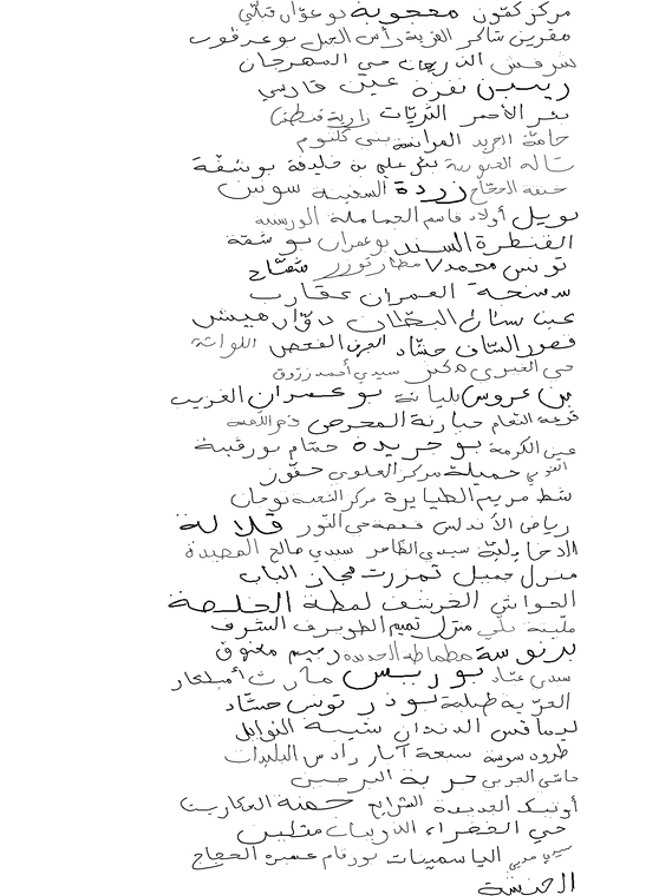 مركز كمون معجوبة دوعوّان قبلّي
مقرين شاكر القرية رأس الجبل بوعرقوب
شرفش الذريعات حي المهرجان
ريسين نفزة عين قادسي
بئر الأحمر الثريّات زاوية قنطش
حامّة الجريد العراسة بني كلثوم
تالة العيونية بئر علي بن خليفة بوشقّة
خنقة الحجّاج زردة السعينة سونين
نويل أولاد قاسم الجماملة الورسنية
القنطرة السند بوعمران بوشقة
تونس محمد٧ مطار توزر شمّاخ
سنحة العمران عقارب
عين ستان البطان دوّار هيشر
قصور السّاف حشّاد العين الفحص اللواتة
حي الخيري مكثر سيدي أحمد زرّوق
بن عروس بليانة بوعمران الغريب
قرعة النعام جبارنة المعرض
عين الكرمة بوجريدة حمّام بورقيبة
جميلة مركز العلوي حفّوز
شط مريم الطيايرة مركز الشعبة نوحان
رياض الأندلس قفصة حي النور قلالة
الدخايلية سيدي الظاهر سيدي صالح المصيدة
منزل جميل تمزرت مجاز الباب
الحواش الخرشف لمطة الخليصة
مليتة بلي منزل تميم الطويرف الشرف
بدنوسة مطماطة الجديدة ريم معتوق
سيدي عبّاد بوربيس مارث أميلكار
العرّية طبلبة بوذر تونس حشّاد
ليماقس الدندان شبيبة النوايل
طرود سوسة سبعة آبار رادس البليدات
حاسي الجربي جربة البرجين
أوتيك الجديدة الشرايع جمنة العكاريت
حي الخضراء الذويبات مثلين
سيدي مديني الياسمينات بورقام عميرة الحجاج
الحنشة